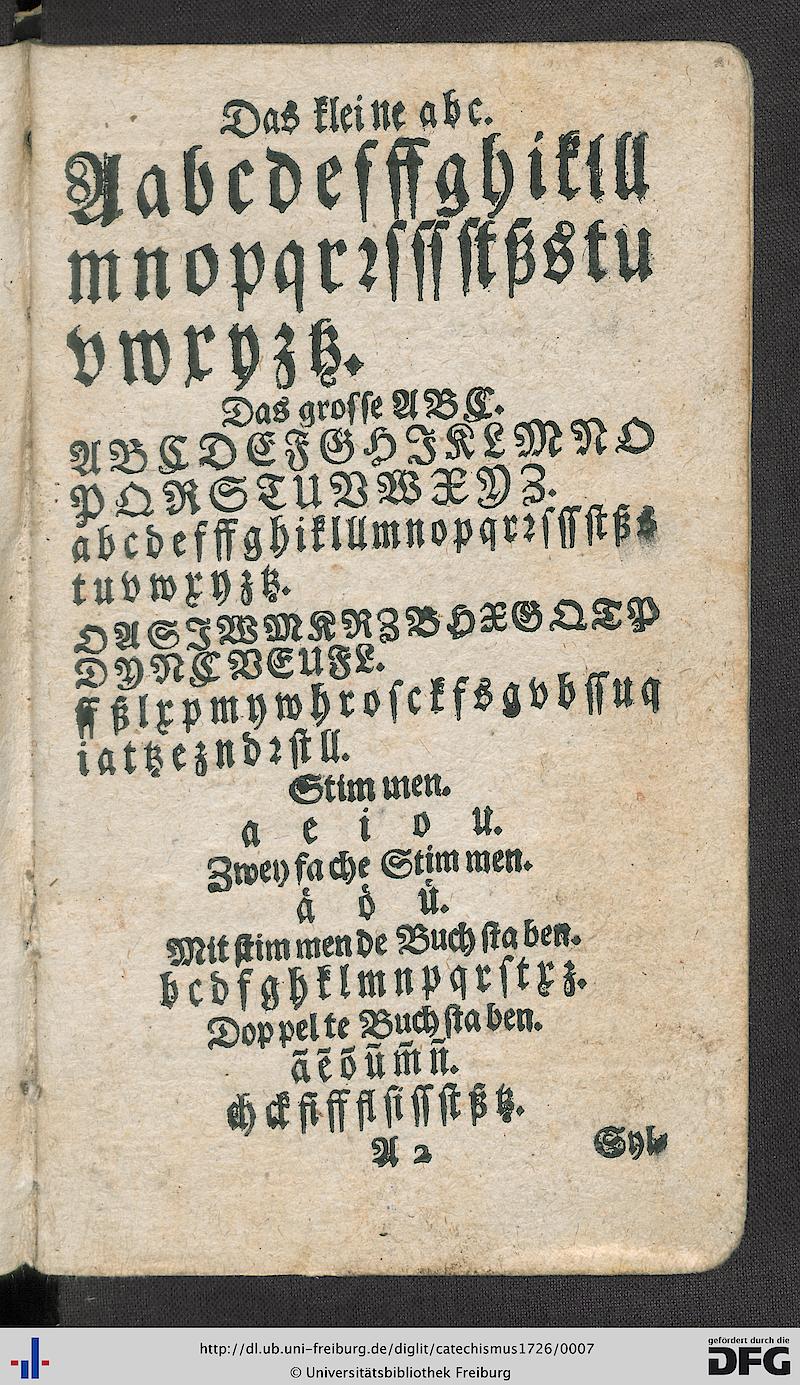 Das klei ne abc.
A a b c d e f ff g h i k l ll
m n o p q r ꝛ ſ ſſ ſt ß s t u
v w x y z tz.
Das groſſe A B C.
A B C D E F G H I K L M N O
P Q R S T U V W X Y Z.
a b c d e f ff g h i k l ll m n o p q r ꝛ ſ ſſ ſt ß s
t u v w x y z tz.
O A S I W M K R Z B H X G Q T P
D Y N C V E U F L.
ff ß l x p m y w h r o ſ c k f s g v b ſſ u q
i a t tz e z n d ꝛ ſt ll.
Stim men.
a e i o u.
Zwey fa che Stim men.
aͤ oͤ uͤ.
Mit ſtim men de Buch ſta ben.
b c d f g h k l m n p q r ſ t x z.
Dop pel te Buch ſta ben.
ā ē ō ū m̄ n̄.
ch ck fi ff fl ſi ſſ ſt ß tz.
A 2
Syl-
http://dl.ub.uni-freiburg.de/diglit/catechismus1726/0007
© Universitätsbibliothek Freiburg
gefördert durch die
DFG